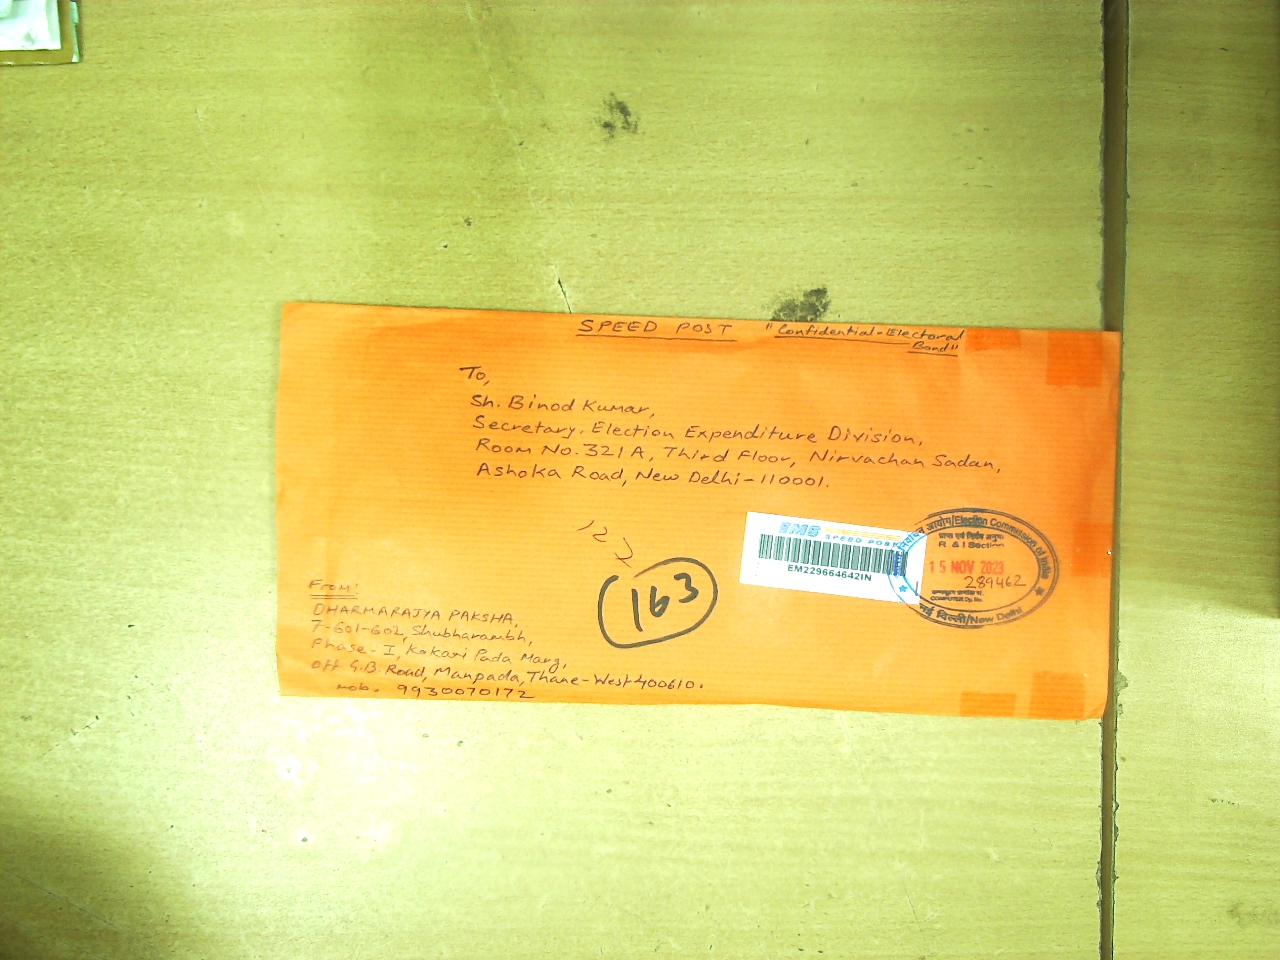 SPEED POST "Confidential-Electoral
Bond"
To,
Sh. Binod Kumar,
Secretary, Election Expenditure Division,
Room No. 321A, Third Floor, Nirvachan Sadan,
Ashoka Road, New Delhi-110001.
EMS
SPEED POST
EM229664642IN
निर्वाचन आयोग/Election Commission of India
प्राप्त एवं निर्गम अनुभाग
R & I Section
15 NOV 2023
289462
COMPUTER Dy. No.
नई दिल्ली/New Delhi
163
From:
DHARMARAJYA PAKSHA,
7-601-602, Shubharambh,
Phase-I, Kokani Pada Marg,
Off G.B. Road, Manpada, Thane-West 400610.
mob. 9930070172